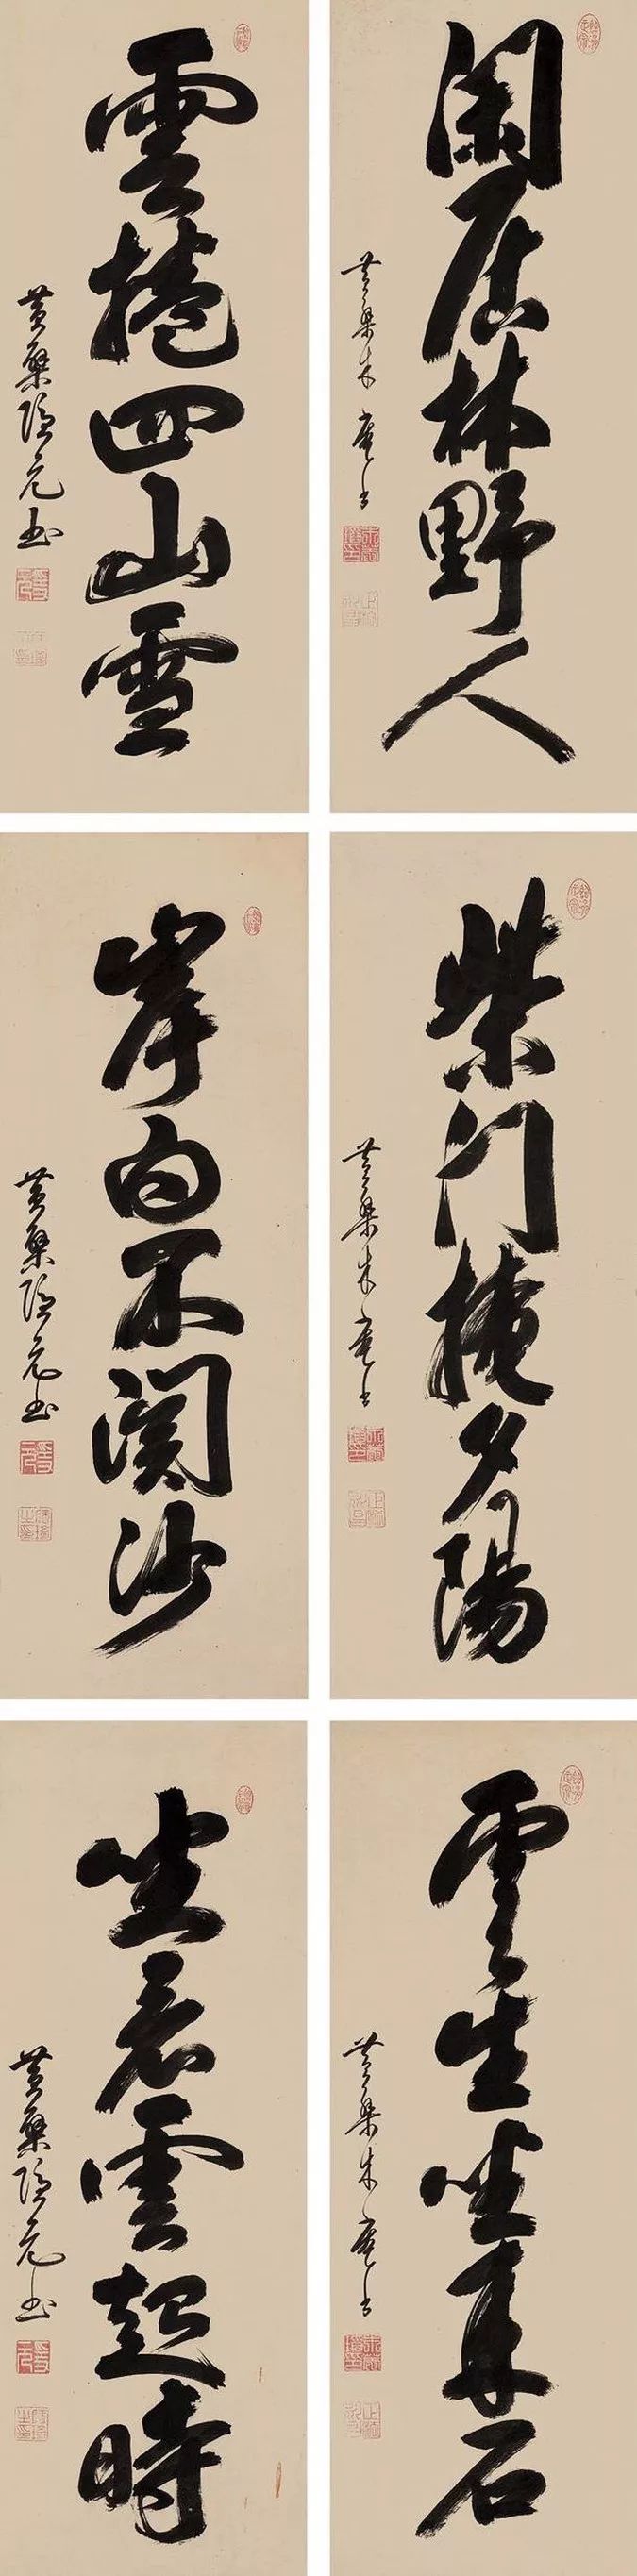 閑居林野人
黄檗木菴書
雲捲四山雪
黄檗隱元書
柴門掩夕陽
黄檗木菴書
岸白不関沙
黄檗隱元書
雲生坐来石
黄檗木菴書
坐看雲起時
黄檗隱元書